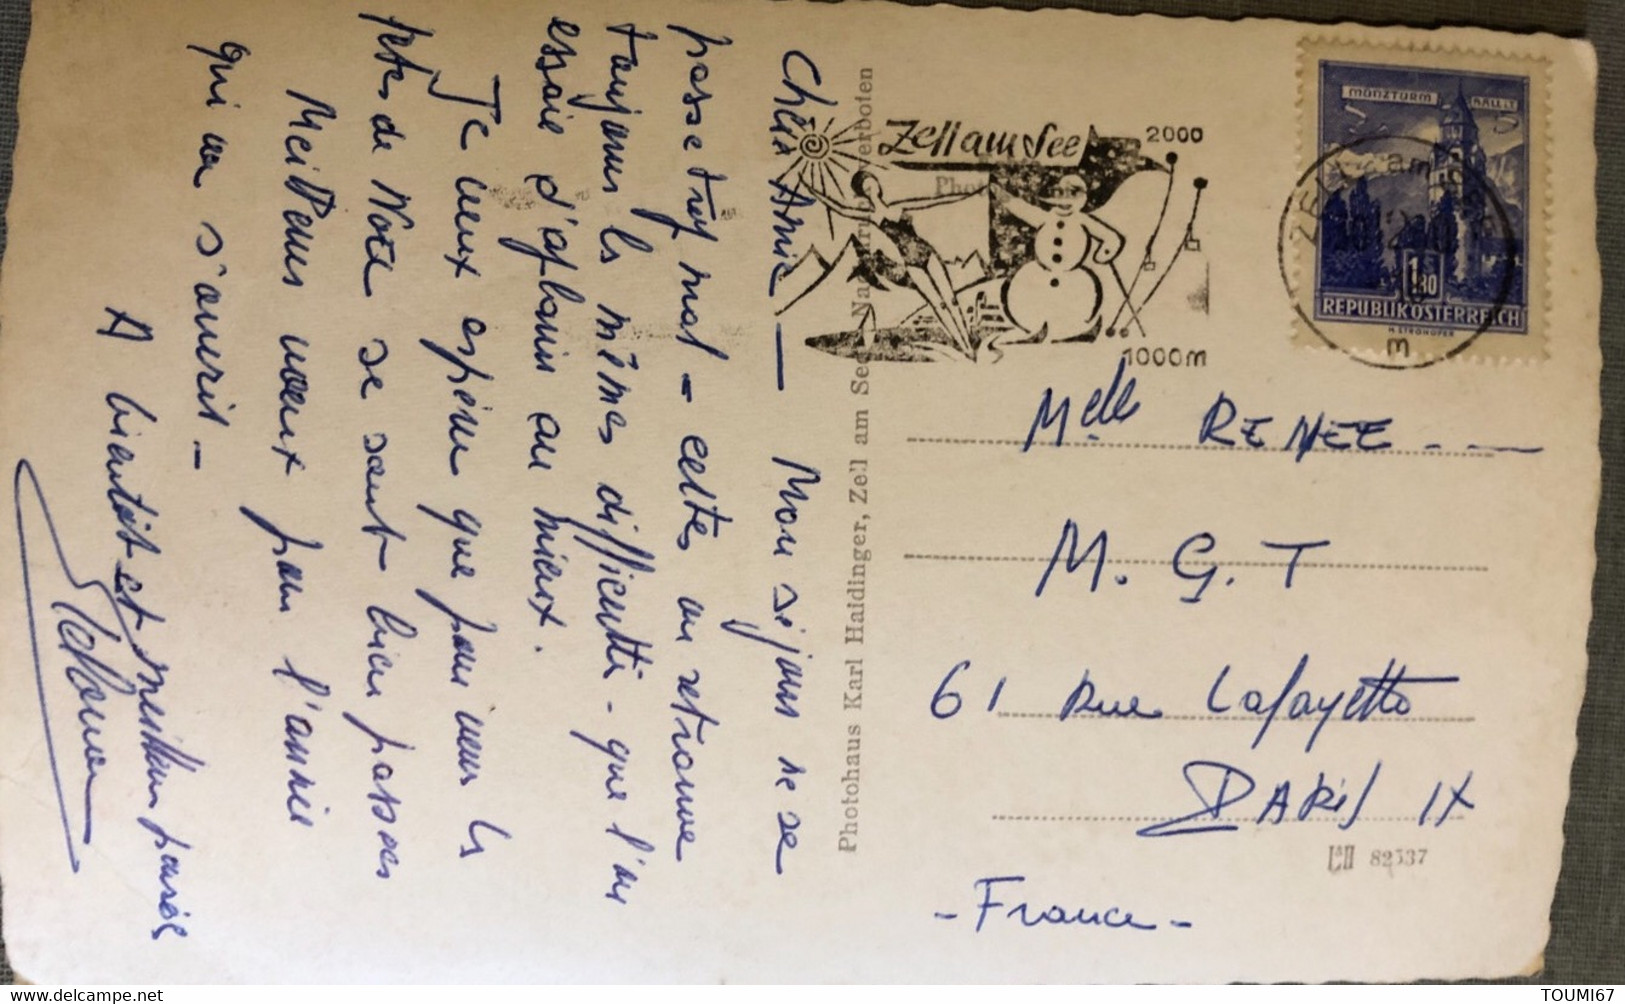 Chère Amie — Mon séjour ne se
passe trop mal - certes on retrouve
toujours les mêmes difficultés - que l'on
essaie d'aplanir au mieux.
Je veux espérer que pour vous les
fêtes de Noël se sont bien passées
Meilleurs vœux pour l'année
qui va s'ouvrir -
A bientôt et meilleurs pensées
Photohaus Karl Haidinger, Zell am See Nachdruck verboten
Zell am See
2000
1000m
MÜNZTURM
HALL I.T.
1.80
REPUBLIK ÖSTERREICH
ZELL am SEE
m
Melle RENEE ---
M. G. T
61 Rue Lafayette
PARIS IX
- France -
82537
TOUMI67